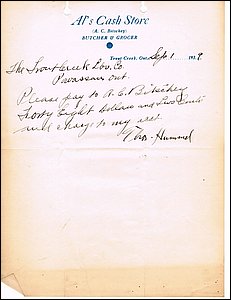 Al's Cash Store
(A. C. Britchey)
BUTCHER & GROCER
Trout Creek, Ont. Sept 1 1939
The Trout Creek Lbr. Co.
Powassan Ont.
Please pay to A. C. Britchey
Forty Eight Dollars and Two Cents
and charge to my acct
Thos. Hummel